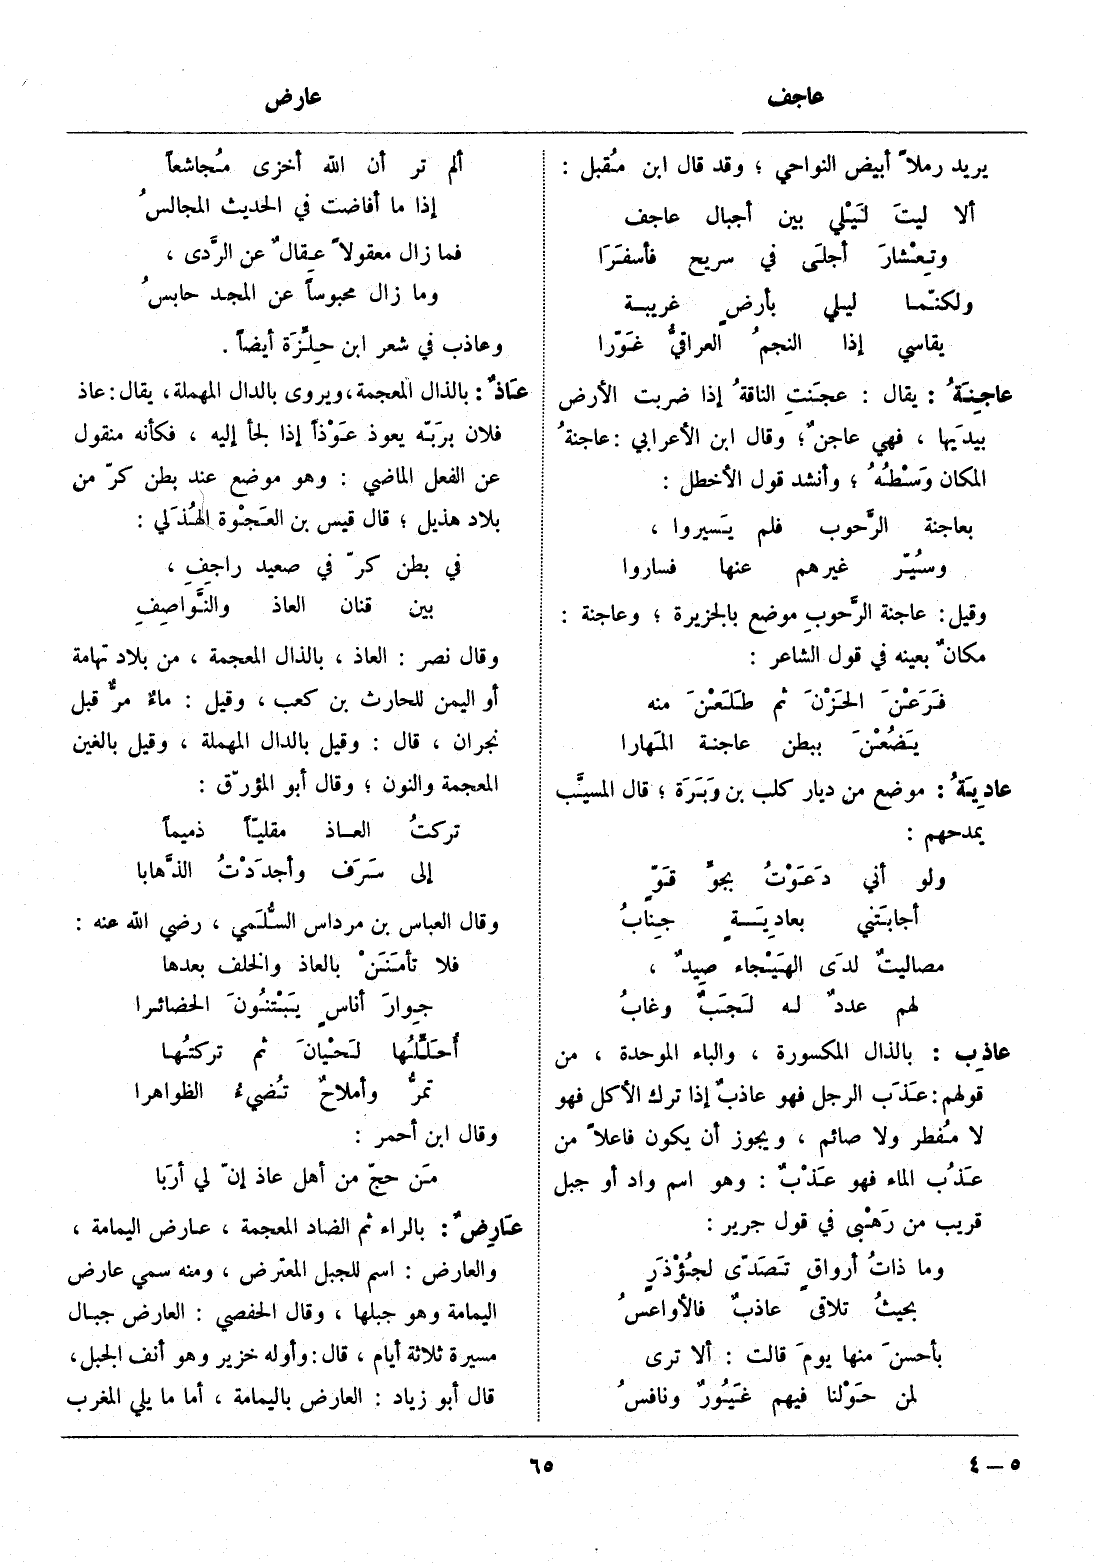 عاجف
عارض
يريد رملاً أبيض النواحي ؛ وقد قال ابن مُقبل :
ألا ليتَ لَيْلي بين أجبال عاجف
وتِعْشارَ أجلَى في سريح فأسفَرَا
ولكنّما ليلي بأرضٍ غريبة
يقاسي إذا النجمُ العراقيُّ غَوّرا
عاجِنَةُ : يقال : عجَنَتِ الناقةُ إذا ضربت الأرض
بيدَيها ، فهي عاجنٌ ؛ وقال ابن الأعرابي : عاجنةُ
المكان وَسْطُهُ ؛ وأنشد قول الأخطل :
بعاجنة الرَّحوب فلم يَسيروا ،
وسُيّر غيرهم عنها فساروا
وقيل : عاجنة الرَّحوبِ موضع بالجزيرة ؛ وعاجنة :
مكانٌ بعينه في قول الشاعر :
فَرَعْنَ الحَزْنَ ثم طَلَعْنَ منه
يَضَعْنَ ببطن عاجنة المَهارا
عادِيَةُ : موضع من ديار كلب بن وَبَرَة ؛ قال المسيَّب
يمدحهم :
ولو أني دَعَوْتُ بجوّ قَوٍّ
أجابَتْني بعادِيَةٍ جِنابُ
مصاليتٌ لدَى الهَيْجاء صِيدٌ ،
لهم عددٌ له لَجَبٌ وغابُ
عاذِب : بالذال المكسورة ، والباء الموحدة ، من
قولهم : عَذَبَ الرجل فهو عاذبٌ إذا ترك الأكل فهو
لا مُفطر ولا صائم ، ويجوز أن يكون فاعلاً من
عَذُبَ الماء فهو عَذْبٌ : وهو اسم واد أو جبل
قريب من رَهْبى في قول جرير :
وما ذاتُ أرواقٍ تَصَدّى لجُؤْذَرٍ
بحيثُ تلاقى عاذبٌ فالأواعسُ
بأحسنَ منها يومَ قالت : ألا ترى
لمن حَوْلنا فيهم غَيُورٌ ونافسُ
ألم تر أن الله أخزى مُجاشعاً
إذا ما أفاضت في الحديث المجالسُ
فما زال معقولاً عِقالٌ عن الرَّدى ،
وما زال محبوساً عن المجد حابسُ
وعاذب في شعر ابن حِلِّزَة أيضاً .
عَاذٌ : بالذال المعجمة ، ويروى بالدال المهملة ، يقال : عاذ
فلان برَبّه يعوذ عَوْذاً إذا لجأ إليه ، فكأنه منقول
عن الفعل الماضي : وهو موضع عند بطن كرّ من
بلاد هذيل ؛ قال قيس بن العَجْوة الهُذَلي :
في بطن كرّ في صعيد راجِفِ ،
بين قنان العاذ والنَّواصِفِ
وقال نصر : العاذ ، بالذال المعجمة ، من بلاد تهامة
أو اليمن للحارث بن كعب ، وقيل : ماءٌ مرٌّ قبل
نجران ، قال : وقيل بالدال المهملة ، وقيل بالغين
المعجمة والنون ؛ وقال أبو المؤرّق :
تركتُ العاذ مقليّاً ذميماً
إلى سَرَف وأجدَدْتُ الذَّهابا
وقال العباس بن مرداس السُّلَمي ، رضي الله عنه :
فلا تأمَنَنْ بالعاذ والخلف بعدها
جِوارَ أناسٍ يَبْتنُونَ الحضائرا
أُحَلِّلُها لَحْيانَ ثم تركتُها
تمرُّ وأملاحٌ تُضيءُ الظواهرا
وقال ابن أحمر :
مَن حجّ من أهل عاذ إنّ لي أرَبَا
عَارِضٌ : بالراء ثم الضاد المعجمة ، عارض اليمامة ،
والعارض : اسم للجبل المعترض ، ومنه سمي عارض
اليمامة وهو جبلها ، وقال الحفصي : العارض جبال
مسيرة ثلاثة أيام ، قال : وأوله خزير وهو أنف الجبل ،
قال أبو زياد : العارض باليمامة ، أما ما يلي المغرب
٥ – ٤
٦٥